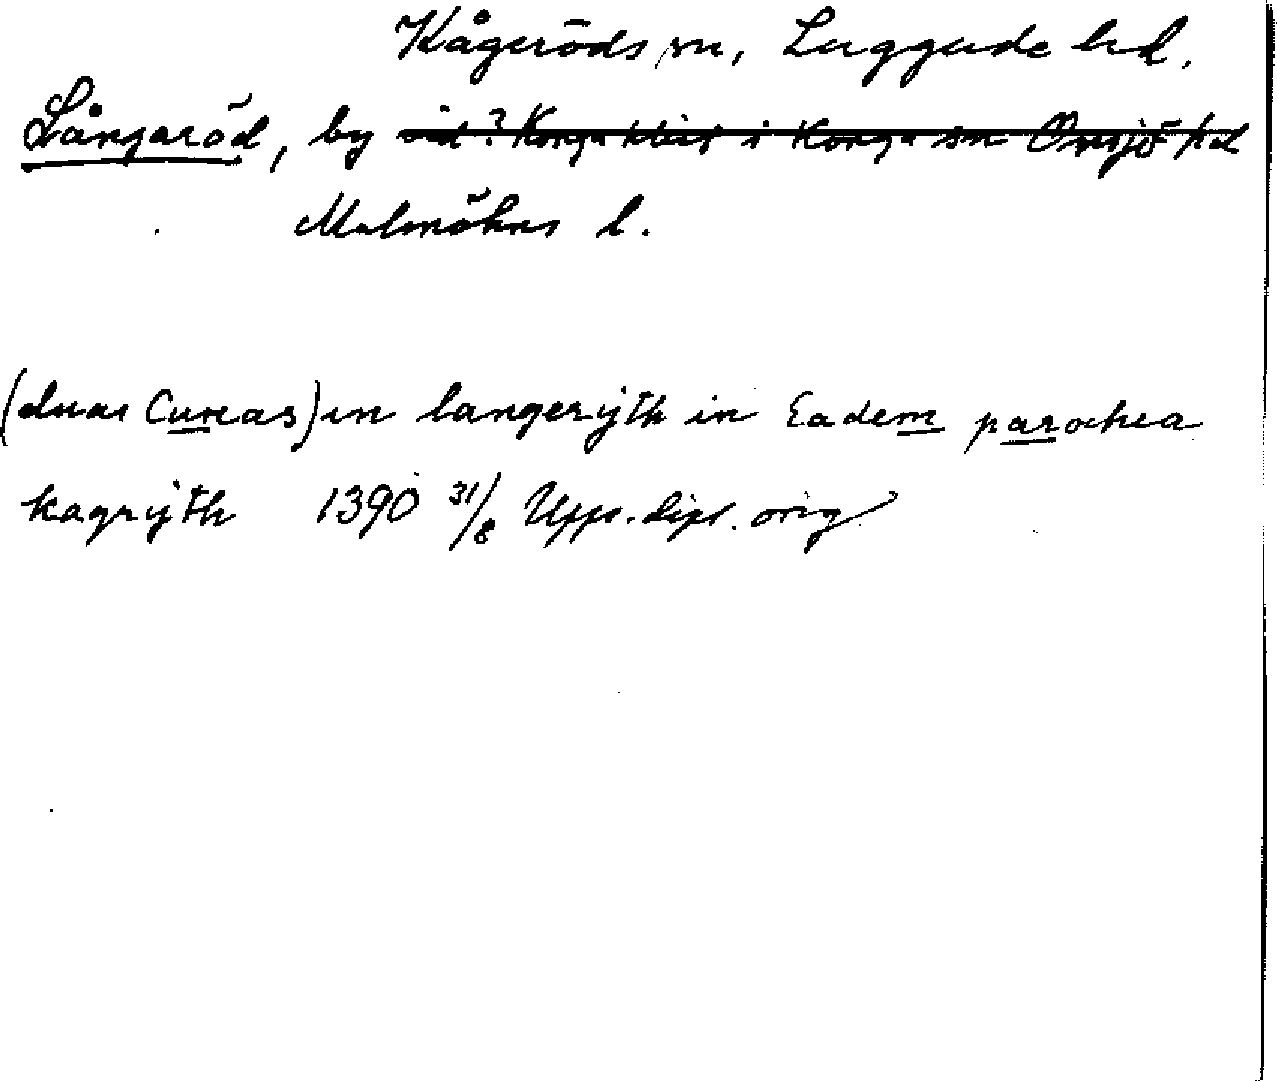 Kågeröds sn, Luggude hd.
Långaröd, by vid? Konga i Konga sn Onsjö hd
Malmöhus l.
(duas Curias) in langerÿth in Eadem parochia
kagrÿth 1390 31/8 Upps. dipl. orig